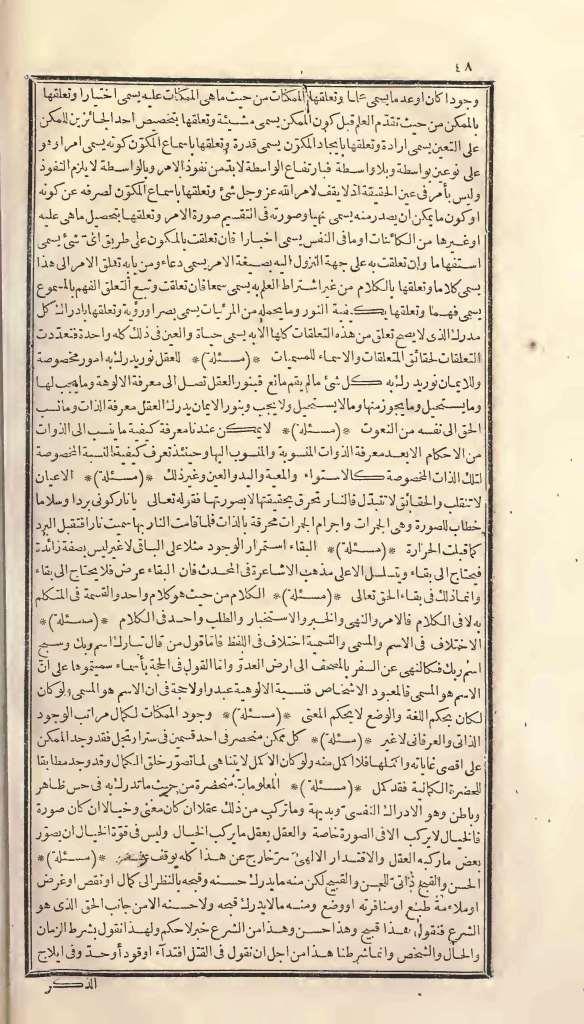 ٤٨
وجودا كان او عدما يسمى علما وتعلقها بالممكنات من حيث ماهى الممكنات عليه يسمى اختيارا وتعلقها
بالممكن من حيث تقدم العلم قبل كون الممكن يسمى مشيئة وتعلقها بتخصيص احد الجائزين للممكن
على التعين يسمى ارادة وتعلقها بايجاد المكوّن يسمى قدرة وتعلقها باسماع المكوّن كونه يسمى امرا وهو
على نوعين بواسطة وبلا واسطة فبارتفاع الواسطة لابدّ من نفوذ الامر وبالواسطة لا يلزم النفوذ
وليس بأمر فى عين الحقيقة اذ لا يقف لامر الله عز وجل شئ وتعلقها باسماع المكوّن لصرفه عن كونه
او كون ما يمكن ان يصدر منه يسمى نهيا وصورته فى التقسيم صورة الامر وتعلقها بتحصيل ماهى عليه
او غيرها من الكائنات او ما فى النفس يسمى اخبارا فان تعلقت بالمكون على طريق اىّ شئ يسمى
استفهاما وان تعلقت به على جهة النزول اليه بصيغة الامر يسمى دعاء ومن بابه تعلق الامر الى هذا
يسمى كلاما وتعلقها بالكلام من غير اشتراط العلم به يسمى سمعا فان تعلقت وتبع التعلق الفهم بالمسموع
يسمى فهما وتعلقها بكيفية النور وما يحمله من المرئيات يسمى بصرا ورؤية وتعلقها بادراك كل
مدرك الذى لا يصح تعلق من هذه التعلقات كلها الا به يسمى حياة والعين فى ذلك كله واحدة تعدّدت
التعلقات لحقائق المتعلقات والاسماء للمسميات * (مسئلة) * للعقل نور يدرك به امور مخصوصة
وللايمان نور يدرك به كل شئ مالم يقم مانع فبنور العقل تصل الى معرفة الالوهة وما يجب لها
وما يستحيل وما يجوز منها وما لا يستحيل ولا يجب وبنور الايمان يدرك العقل معرفة الذات وما نسب
الحق الى نفسه من النعوت * (مسئلة) * لا يمكن عندنا معرفة كيفية ما ينسب الى الذوات
من الاحكام الا بعد معرفة الذوات المنسوبة والمنسوب اليها وحينئذ تعرف كيفية النسبة المخصوصة
لتلك الذات المخصوصة كالاستواء والمعية واليد والعين وغير ذلك * (مسئلة) * الاعيان
لا تنقلب والحقائق لا تتبدّل فالنار تحرق بحقيقتها لا بصورتها فقوله تعالى يا نار كونى بردا وسلاما
خطاب للصورة وهى الجمرات واجرام الجمرات محرقة بالذات فلما قامت النار بها سميت نارا فتقبل البرد
كما قبلت الحرارة * (مسئلة) * البقاء استمرار الوجود مثلا على الباقى لا غير ليس بصفة زائدة
فيحتاج الى بقاء ويتسلسل الا على مذهب الاشاعرة فى المحدث فان البقاء عرض فلا يحتاج الى بقاء
وانما ذلك فى بقاء الحق تعالى * (مسئلة) * الكلام من حيث هو كلام واحد والقسمة فى المتكلم
به لا فى الكلام فالامر والنهى والخبر والاستخبار والطلب واحد فى الكلام * (مسئلة) *
الاختلاف فى الاسم والمسمى والتسمية اختلاف فى اللفظ فاما قول من قال تبارك اسم ربك وسبح
اسم ربك فكالنهى عن السفر بالمصحف الى ارض العدوّ واما القول فى الحجة بأسماء سميتموها على انّ
الاسم هو المسمى فالمعبود الاشخاص فنسبة الالوهية عبدوا ولا حجة فى ان الاسم هو المسمى ولو كان
لكان بحكم اللغة والوضع لا بحكم المعنى * (مسئلة) * وجود الممكنات لكمال مراتب الوجود
الذاتى والعرفانى لا غير * (مسئلة) * كل ممكن منحصر فى احد قسمين فى ستر او تجل فقد وجد الممكن
على اقصى غاياته واكملها فلا اكمل منه ولو كان الاكمل لا يتناهى لما تصوّر خلق الكمال وقد وجد مطابقا
للحضرة الكمالية فقد كمل * (مسئلة) * المعلومات منحضرة من حيث ما تدرك به فى حس ظاهر
وباطن وهو الادراك النفسىّ وبديهة وما تركب من ذلك عقلا ان كان معنى وخيالا ان كان صورة
فالخيال لا يركب الا فى الصورة خاصة والعقل يعقل ما يركب الخيال وليس فى قوّة الخيال ان يصوّر
بعض ما يركبه العقل والاقتدار الالهىّ سرّ خارج عن هذا كله يوقف * (مسئلة) *
الحسن والقبح ذاتىّ للحسن والقبيح لكن منه ما يدرك حسنه وقبحه بالنظر الى كمال او نقص او غرض
او ملاءمة طبع او منافرته او وضع ومنه ما لا يدرك قبحه ولا حسنه الا من جانب الحق الذى هو
الشرع فنقول هذا قبيح وهذا حسن وهذا من الشرع خبر لا حكم ولهذا نقول بشرط الزمان
والحال والشخص وانما شرطنا هذا من اجل ان نقول فى القتل ابتداء او قودا وحدّ وفى ايلاج
الذكر